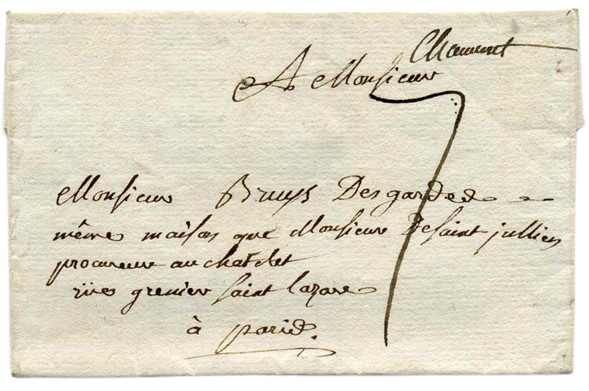 Chaumont
A Monsieur
7
Monsieur Bruys Desgardes
même maison que Monsieur De saint jullien
procureur au chatelet
rüe grenier saint lazare
à paris